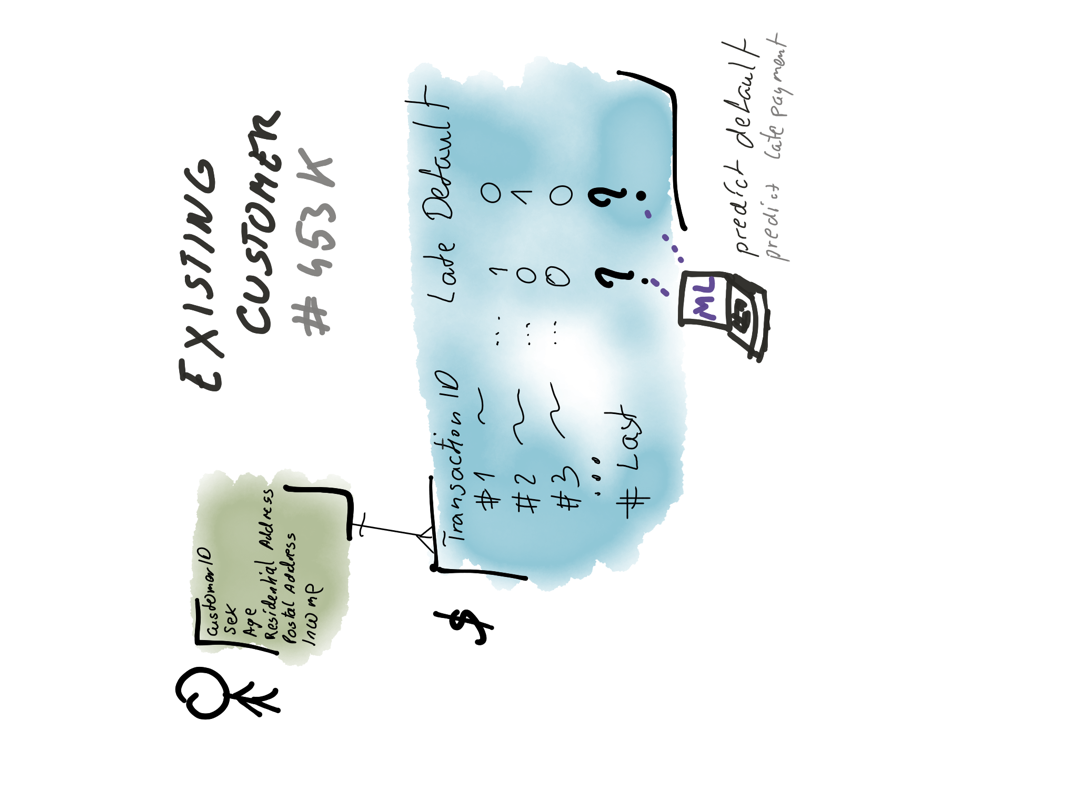 EXISTING
CUSTOMER
# 453 K
CustomerID
Sex
Age
Residential Address
Postal Address
Income
$
Transaction ID Late Default
#1 ~ ... 1 0
#2 ~ ... 0 1
#3 ~ ... 0 0
...
# Last ? ?
ML
predict default
predict late payment